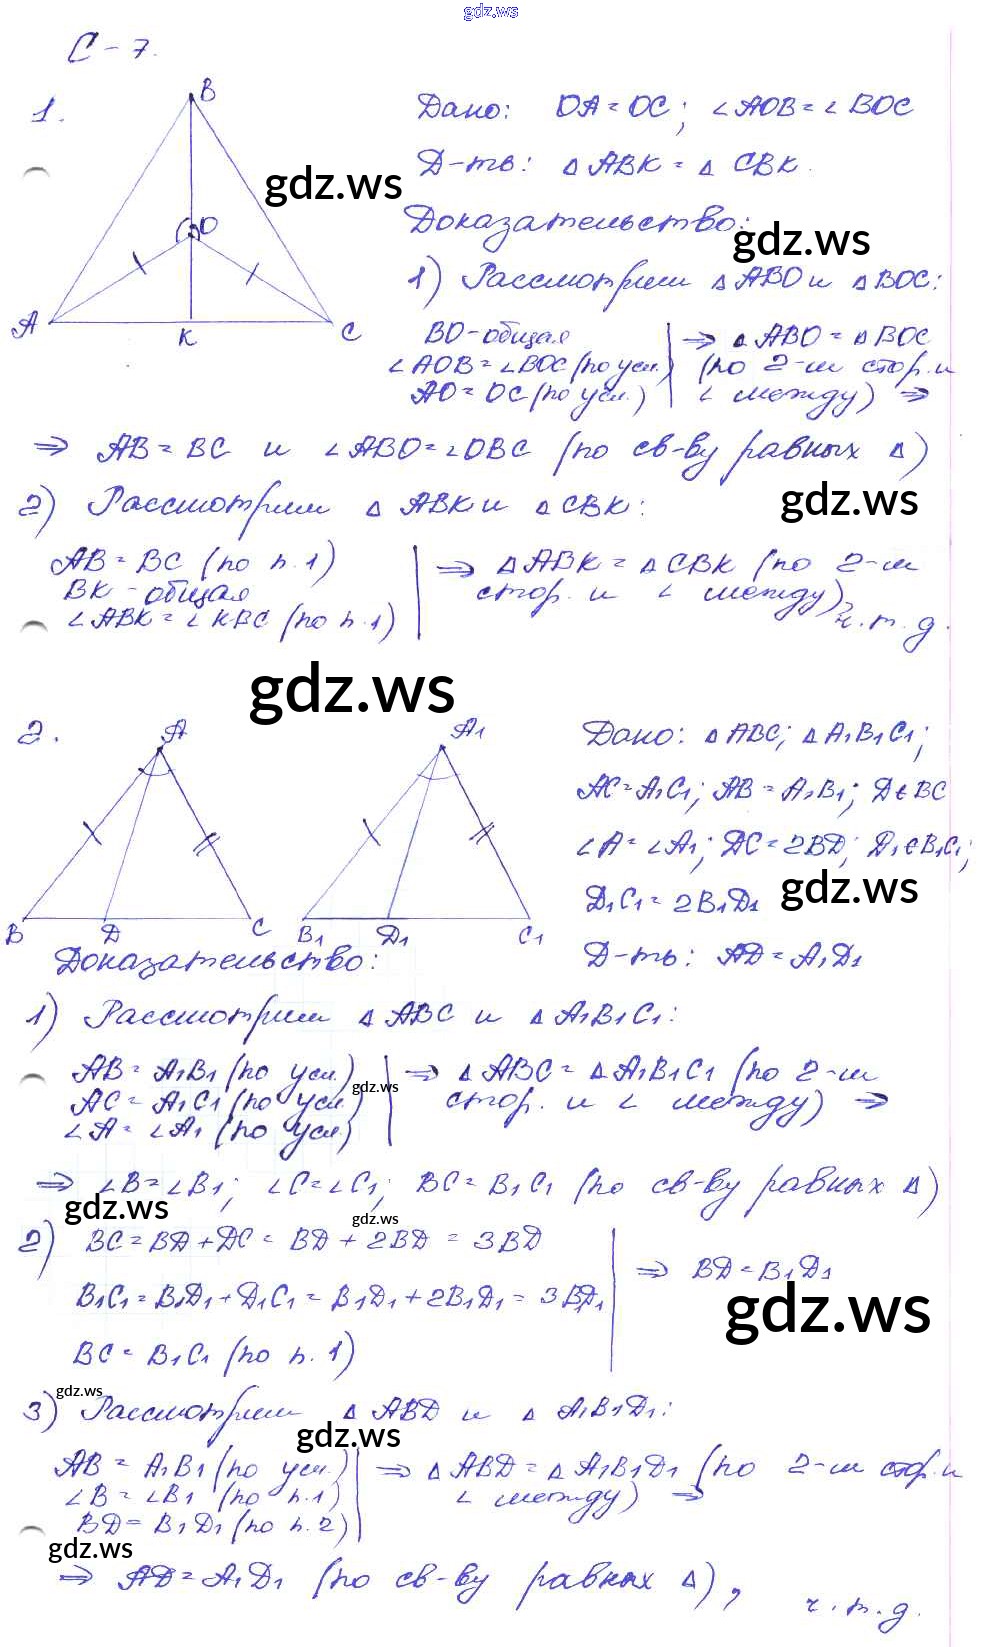 gdz.ws
С-7.
1.
B
O
A
K
C
Дано: OA=OC; ∠AOB=∠BOC
Д-ть: △ABK=△CBK.
gdz.ws
Доказательство:
gdz.ws
1) Рассмотрим △ABO и △BOC:
BO-общая
∠AOB=∠BOC (по усл.)
AO=OC (по усл.)
⇒ △ABO=△BOC
(по 2-м стор. и
∠ между) ⇒
⇒ AB=BC и ∠ABO=∠OBC (по св-ву равных △)
gdz.ws
2) Рассмотрим △ABK и △CBK:
AB=BC (по п.1)
BK-общая
∠ABK=∠KBC (по п.1)
⇒ △ABK=△CBK (по 2-м
стор. и ∠ между),
ч.т.д.
gdz.ws
2.
A
B
D
C
A1
B1
D1
C1
Дано: △ABC; △A1B1C1;
AC=A1C1; AB=A1B1; D∈BC
∠A=∠A1; DC=2BD; D1∈B1C1;
gdz.ws
D1C1=2B1D1
Д-ть: AD=A1D1
Доказательство:
1) Рассмотрим △ABC и △A1B1C1:
AB=A1B1 (по усл.)
gdz.ws
AC=A1C1 (по усл.)
∠A=∠A1 (по усл.)
⇒ △ABC=△A1B1C1 (по 2-м
стор. и ∠ между) ⇒
⇒ ∠B=∠B1; ∠C=∠C1; BC=B1C1 (по св-ву равных △)
gdz.ws
gdz.ws
2) BC=BD+DC=BD+2BD=3BD
B1C1=B1D1+D1C1=B1D1+2B1D1=3B1D1
BC=B1C1 (по п.1)
⇒ BD=B1D1
gdz.ws
gdz.ws
3) Рассмотрим △ABD и △A1B1D1:
gdz.ws
AB=A1B1 (по усл.)
∠B=∠B1 (по п.1)
BD=B1D1 (по п.2)
⇒ △ABD=△A1B1D1 (по 2-м стор. и
∠ между) ⇒
gdz.ws
⇒ AD=A1D1 (по св-ву равных △),
ч.т.д.